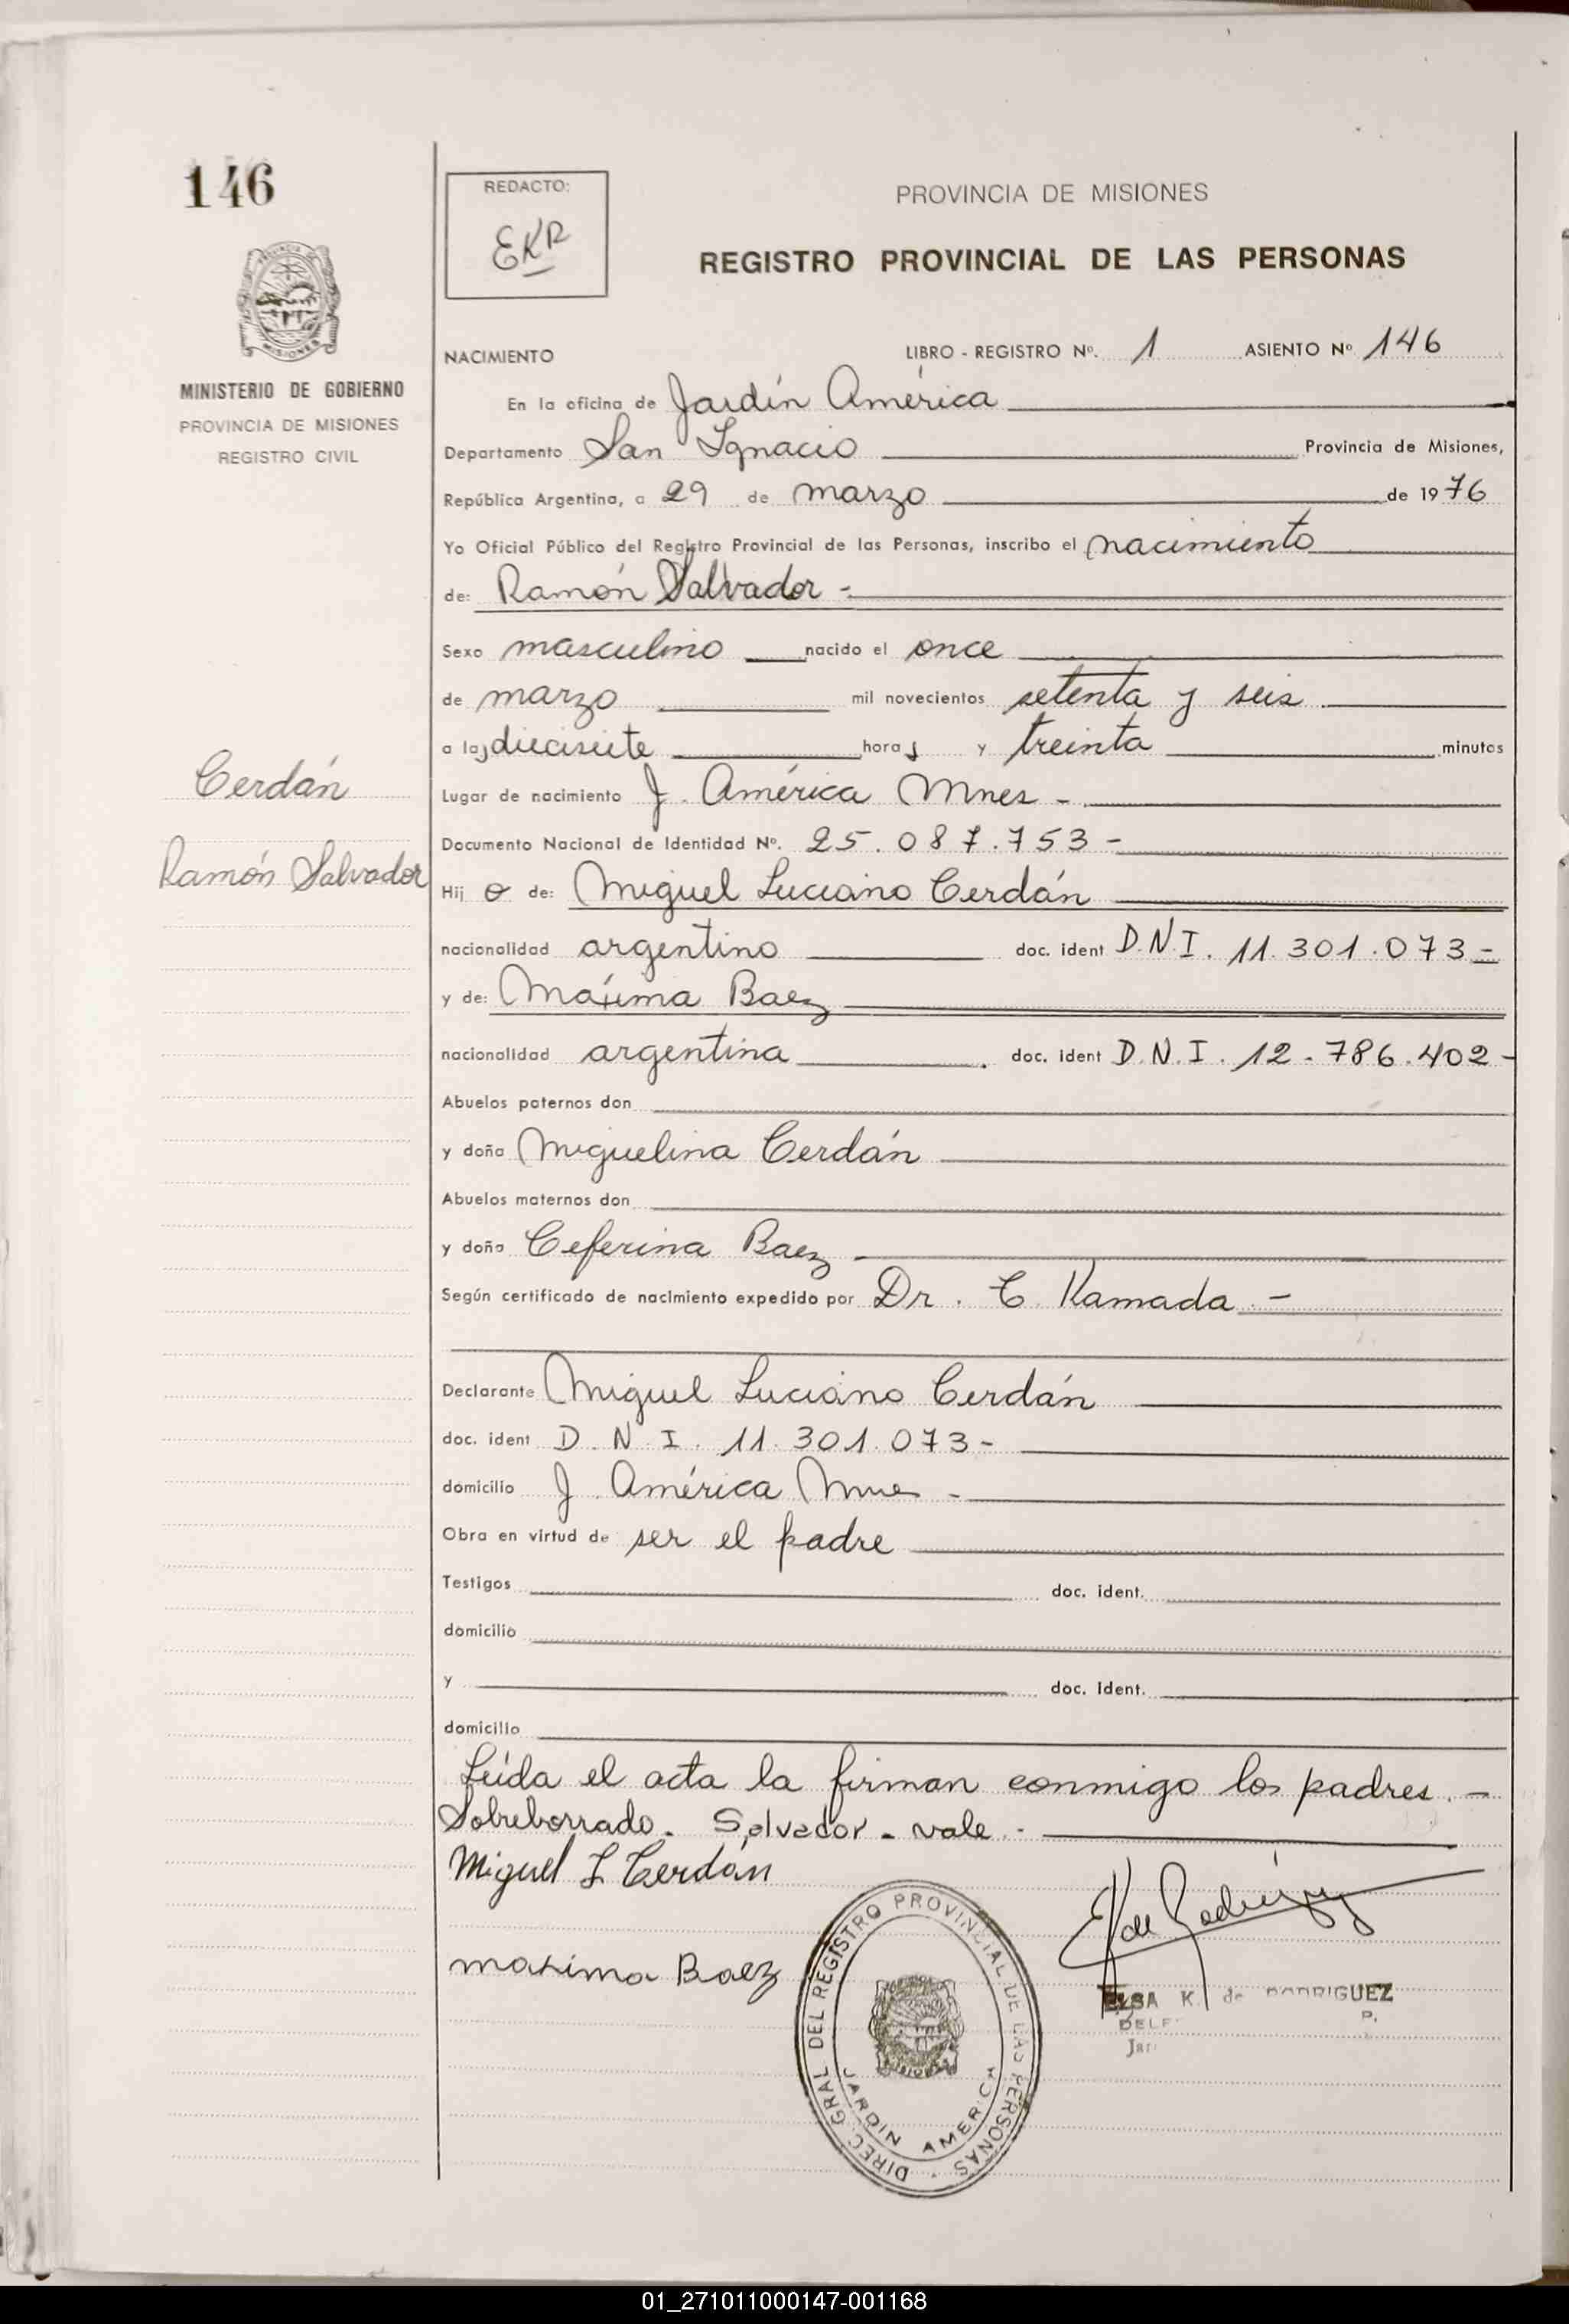 146
REDACTO:
EKR
PROVINCIA DE MISIONES
REGISTRO PROVINCIAL DE LAS PERSONAS
MISIONES
MINISTERIO DE GOBIERNO
PROVINCIA DE MISIONES
REGISTRO CIVIL
NACIMIENTO LIBRO - REGISTRO Nº. 1 ASIENTO Nº 146
En la oficina de Jardín América
Departamento San Ignacio Provincia de Misiones,
República Argentina, a 29 de marzo de 1976
Yo Oficial Público del Registro Provincial de las Personas, inscribo el nacimiento
de: Ramón Salvador -
Sexo masculino nacido el once
de marzo mil novecientos setenta y seis
a las diecisiete horas y treinta minutos
Cerdán
Lugar de nacimiento J. América Mnes -
Documento Nacional de Identidad Nº. 25.087.753 -
Ramón Salvador
Hijo de: Miguel Luciano Cerdán
nacionalidad argentino doc. ident D.N.I. 11.301.073 -
y de: Máxima Baez
nacionalidad argentina doc. ident D.N.I. 12.786.402 -
Abuelos paternos don
y doña Miguelina Cerdán
Abuelos maternos don
y doña Ceferina Baez
Según certificado de nacimiento expedido por Dr. C. Kamada -
Declarante Miguel Luciano Cerdán
doc. ident D.N.I. 11.301.073 -
domicilio J. América Mnes -
Obra en virtud de ser el padre
Testigos doc. ident.
domicilio
y doc. ident.
domicilio
Leída el acta la firman conmigo los padres. -
Sobreborrado. Salvador - vale. -
Miguel L Cerdán
maxima Baez
DIREC. GRAL DEL REGISTRO PROVINCIAL DE LAS PERSONAS
JARDIN AMERICA
EK de Rodríguez
ELSA K. de RODRIGUEZ
01_271011000147-001168